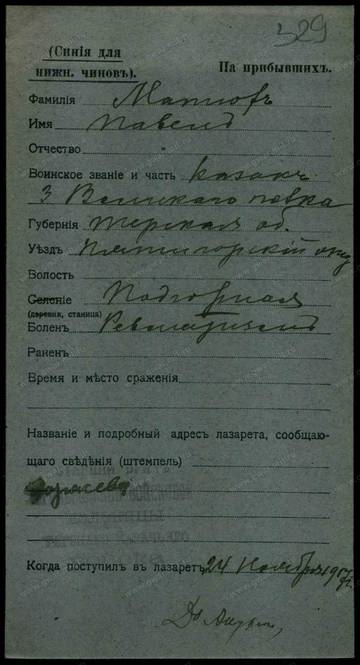 329
(Синія для
нижн. чиновъ).
На прибывшихъ.
Фамилія
Имя Павелъ
Отчество
Воинское званіе и часть казакъ
3 Волгскаго полка
Губернія Терская об.
Уѣздъ Пятигорскій
Волость
Селеніе Подгорная
(деревня, станица)
Боленъ Ревматизмъ
Раненъ
Время и мѣсто сраженія
Названіе и подробный адресъ лазарета, сообщаю-
щаго свѣдѣнія (штемпель)
Когда поступилъ въ лазаретъ 24 Ноября